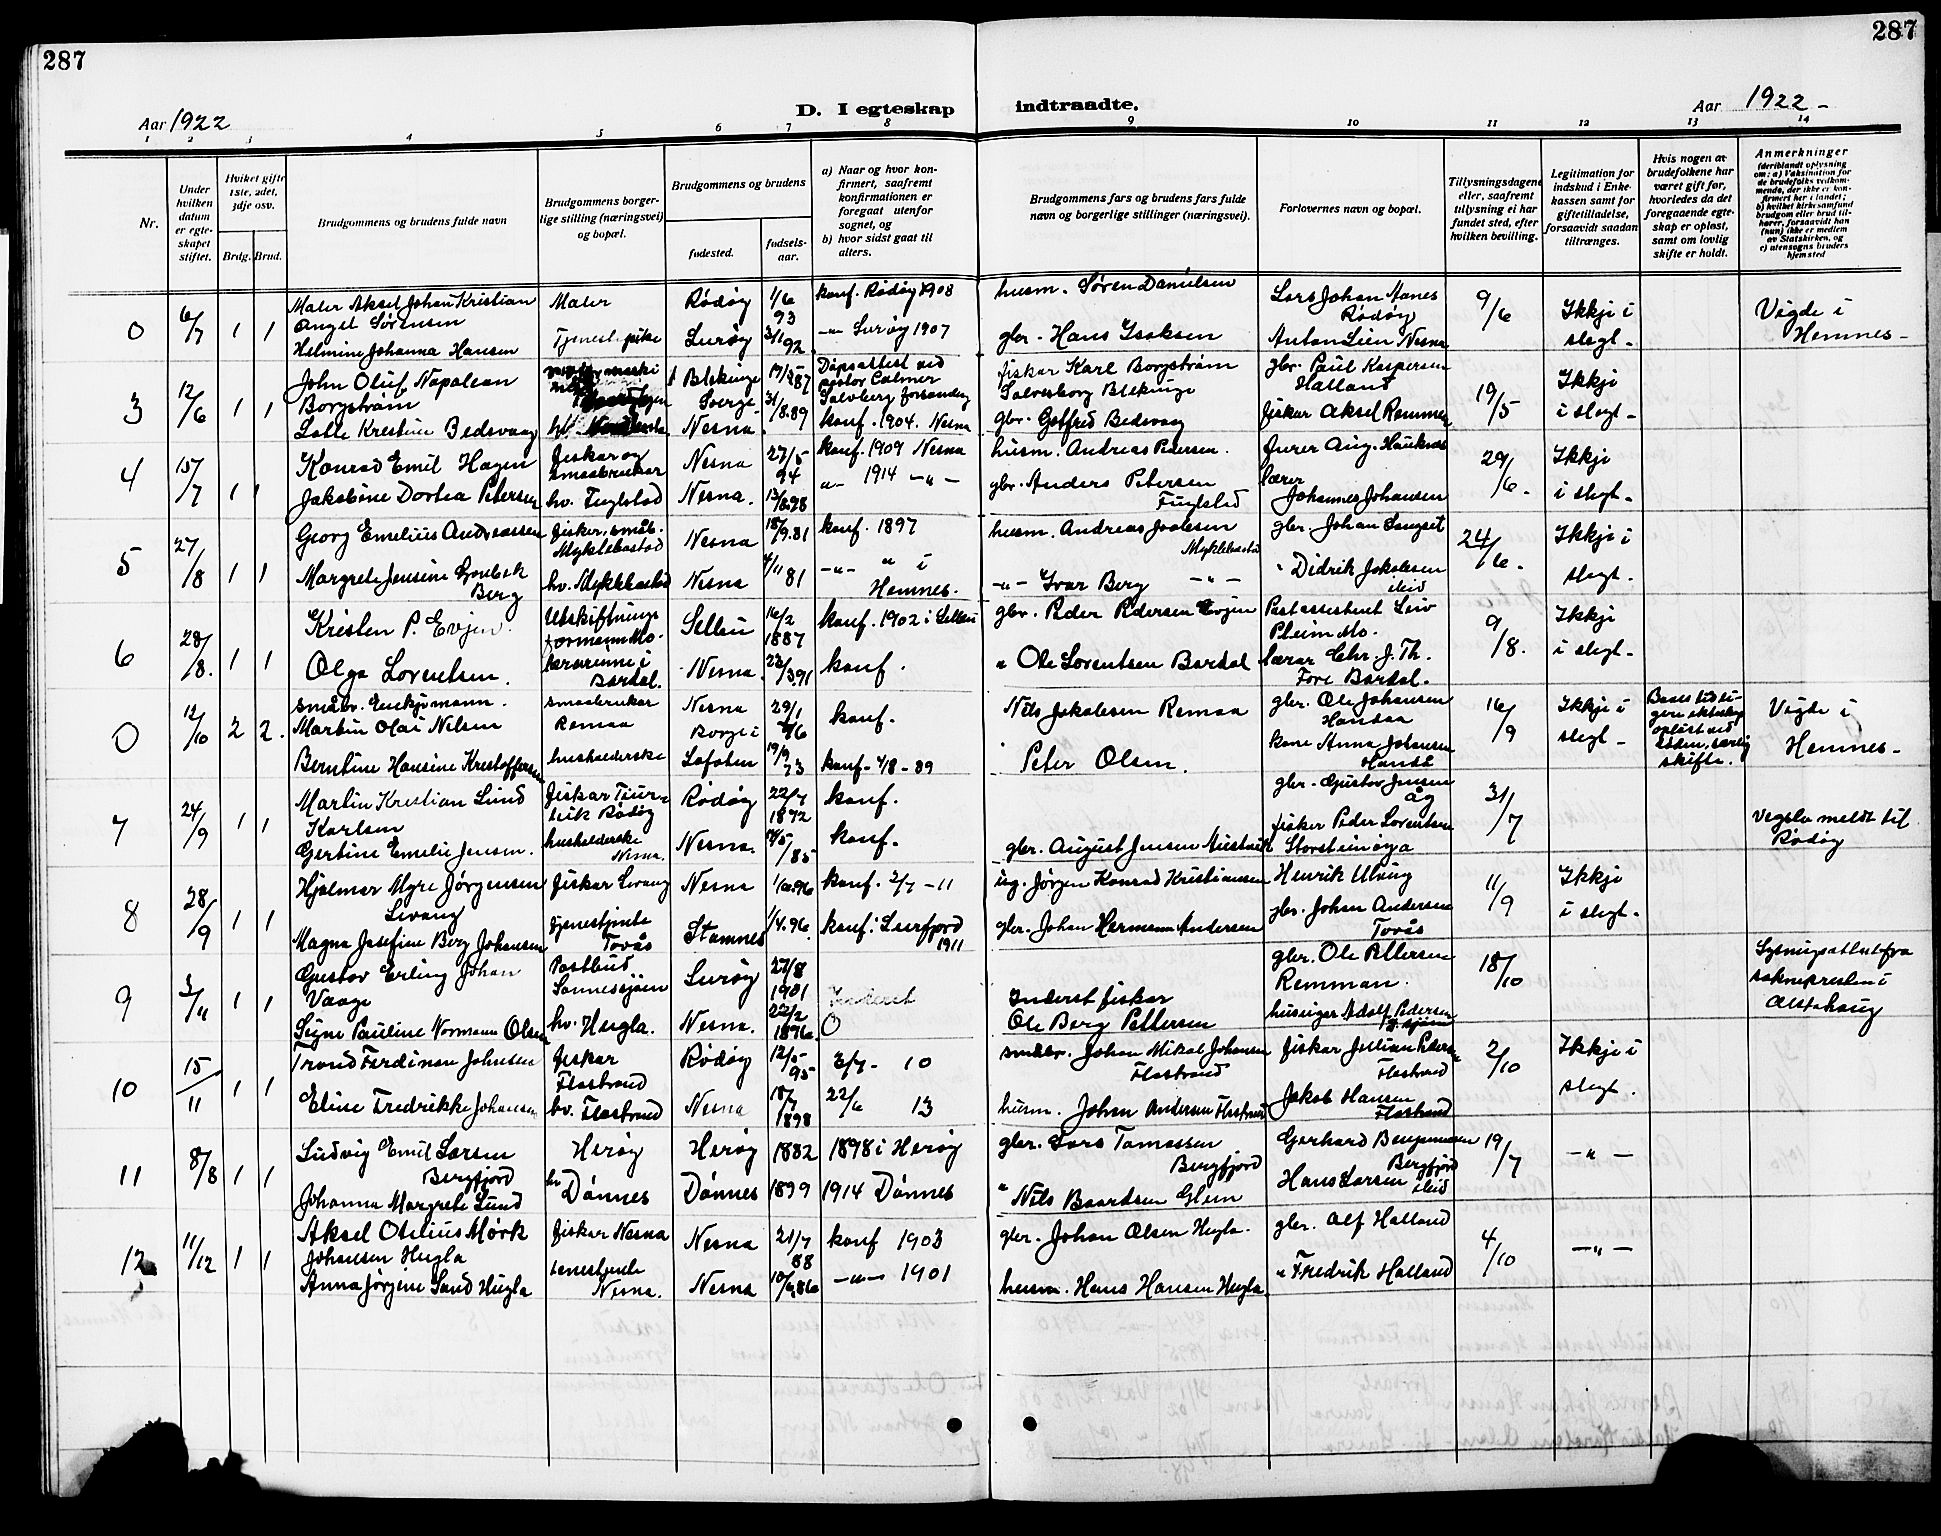 287
287
Aar 1922
D. I egteskap
indtraadte.
Aar 1922 -
1 2 3 4 5 6 7 8 9 10 11 12 13 14
Nr.
Under hvilken datum er egteskapet stiftet.
Hvilket gifte 1ste, 2det, 3dje osv.
Brdg. Brud.
Brudgommens og brudens fulde navn
Brudgommens borgerlige stilling (næringsvei) og bopæl.
Brudgommens og brudens
fødested.
fødselsaar.
a) Naar og hvor konfirmert, saafremt konfirmationen er foregaat utenfor sognet, og
b) hvor sidst gaat til alters.
Brudgommens fars og brudens fars fulde navn og borgerlige stillinger (næringsvei).
Forlovernes navn og bopæl.
Tillysningsdagene eller, saafremt tillysning ei har fundet sted, efter hvilken bevilling.
Legitimation for indskud i Enkekassen samt for giftetilladelse, forsaavidt saadan tiltrænges.
Hvis nogen av brudefolkene har været gift før, hvorledes da det foregaaende egteskap er opløst, samt om lovlig skifte er holdt.
Anmerkninger
(deriblandt oplysning om: a) Vaksination for de brudefolks vedkommende, der ikke er konfirmert her i landet; b) hvilket kirkesamfund brudgom eller brud tilhører, forsaavidt han (hun) ikke er medlem av Statskirken, og c) utensogns bruders hjemsted
0 6/7 1 1
Maler Aksel Johan Kristian
Angel Sørensen
Helmine Johanna Hansen
Maler
Tjenest. pike
Rødøy 1/6 93
Lurøy 3/11 92
konf. Rødøy 1908
-"- Lurøy 1907
husm. Søren Danielsen
gbr. Hans Isaksen
Lars Johan Aanes
Rødøy
Anton Lien Nesna
9/6
Ikkji i
slegt -
Vigde i
Hemnes -
3 12/6 1 1
John Oluf Napoleon
Borgstrøm
Lolle Kristine Bedsvaag
Blekinge
Sverge
Nesna
31/8.89
Døpsattest ved
pastor Calmer
konf. 1904. Nesna
fiskar Karl Borgstrøm
Solvesborg Blekinge
gbr. Gotfred Bedsvaag
gbr. Paul Kaspersen
Halland
fiskar Aksel Remmen
19/5
Ikkji
i slegt -
4 15/7 1 1
Konrad Emil Hagen
Jakobine Dortea Petersen
fiskar og
smaabrukar
hv. Fuglstad
Nesna 27/5 94
Nesna. 13/8 98
konf. 1909 Nesna
-"- 1914 -"-
husm. Andreas Pedersen.
gbr. Anders Petersen
Fuglstad
lærer
Johannes Johansen
29/6.
Ikkji
i slegt -
5 27/8 1 1
Georg Emelius Andreassen
Margrete Jensine
Berg
fisker, småb.
Myklebostad
hv. Myklebostad
Nesna 18/9.81
Nesna 4/11 81
konf. 1897
-"- " i
Hemnes.
husm. Andreas Joalesen
Myklebostad
-"- Ivar Berg -"-
gbr. Johan Langset
" Didrik Jakobsen
ibid
24/6.
Ikkji i
slegt.
6 28/8. 1 1
Kristen P. Evjen.
Olga Lorentsen.
Utskiftnings
formann Mo.
lærarinne i
Bardal.
16/2 1887
Nesna 23/3 91
konf. 1902 i
konf.
gbr. Peder Pedersen Evjen
" Ole Lorentsen Bardal
Postassistent Leiv
Pleim Mo.
lærar Chr. J. Th.
Fore Bardal.
9/8.
Ikkji
i slegt -
0 12/10 2 2.
småbr. Enkjemann.
Martin Olai Nilsen
Berntine Hansine Kristoffersen
smaabrukar
Remaa
husholderske
Nesna 29/1
Borge i
Lofoten 19/9 73
konf.
konf. 4/8 - 89
Nils Jakobsen Remaa
Peter Olsen.
gbr. Ole Johansen
Handaa
kone Anna Johansen
16/9
Ikkji i
slegt -
Vigde i
Hemnes -
7 24/9 1 1
Martin Kristian Lund
Karlsen
Gertine Emelie Jensen.
Rødøy
husholderske
Nesna.
Rødøy 22/7 1872
Nesna. 14/5 /85
konf.
konf.
gbr. August Jensen
gbr. Gustav Jensen
Åg
fisker Peder Lorentsen
Storsteinøya
31/7
Vigsla meldt til
Rødøy
8 28/9 1 1
Hjalmar Myre Jørgensen
Levang
Magna Josefine Berg Johansen
fiskar Levang
tjenestjente
Tovås
Nesna 1/6.96
Stamnes 1/4.96
konf. 2/7 - 11
konf. i Leirfjord
1911
ug. Jørgen Konrad Kristiansen
gbr. Johan Hermann Andersen
Henrik Ulvung
gbr. Johan Andersen
Tovås
11/9
Ikkji
i slegt.
9 3/11 1 1
Gustav Erling Johan
Vaage
Signe Pauline Normann Olsen
Postbud
Sannessjøen
hv. Hugla.
Lurøy 27/8 1901
Nesna. 22/2 1896
0
Inderst fiskar
Ole Berg Pettersen
gbr. Ole Pettersen
Remman.
Adolf Pedersen
18/10
Lysningsattest fra
soknepresten i
Alstahaug
10 15/11 1 1
Trond Ferdinan Johnsen
Eline Fredrikke Johansen
fiskar
Flostrand
hv. Flostrand
Rødøy 12/5 95
Nesna 18/7 1898
3/7 - 10
22/6 13
småbr. Johan Mikal Johansen
Flostrand
husm. Johan Andersen Flostrand
fiskar Julian Pedersen
Flostrand
Jakob Hansen
Flostrand
2/10
Ikkji i
slegt.
11 8/8 1 1
Ludvig Emil Larsen
Bergfjord
Johanna Margrete Lund
Herøy
hv Dønnes
Herøy 1882
Dønnes 1899
1898 i Herøy
1914 Dønnes
gbr. Lars Tomassen
Bergfjord
" Nils Baardsen Glein
Gerhard Benjaminsen
Bergfjord
Hans Larsen ibid
19/7
-"-
12 11/12 1 1
Aksel Otelius Mørk
Johansen Hugla
Anna Jørgine Sand Hugla
fiskar Nesna
tenestjente
Nesna.
Nesna 21/7 88
Nesna 10/6 86
konf 1903
-"- 1901
gbr. Johan Olsen Hugla.
husm. Hans Hansen Hugla.
gbr. Alf Halland
" Fredrik Halland
4/10
-"-